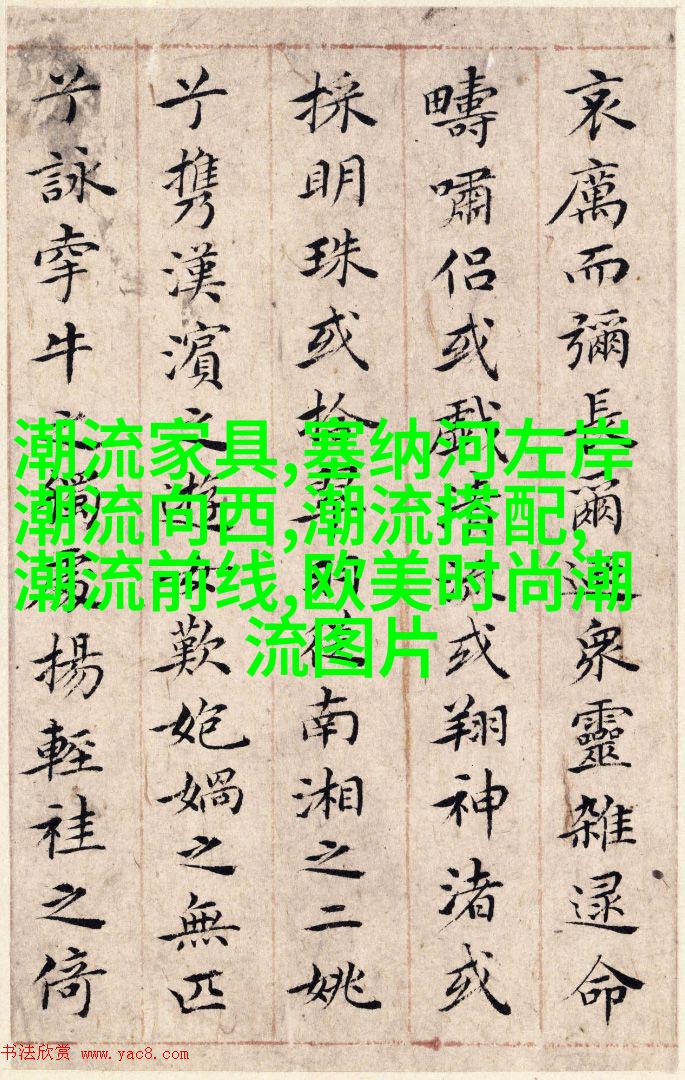 哀厲而彌長爾迺衆靈雜遝命
疇嘯侶或戲清流或翔神渚或
採明珠或拾翠羽從南湘之二姚
兮携漢濱之遊女歎媧之無匹
兮詠牽牛之獨處揚輕袿之倚
潮流家具,塞纳河左岸
潮流向西,潮流搭配,
潮流前线,欧美时尚潮
流图片
书法欣赏 www.yac8.com